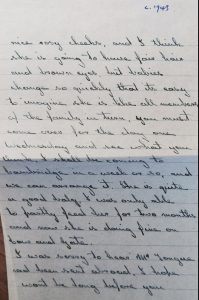 c. 1943
nice rosy cheeks, and I think
she is going to have fair hair
and brown eyes but babies
change so quickly that its easy
to imagine she is like all members
of the family in turn, you must
come over for the day one
Wednesday and see what you
think. I shall be coming to
Cambridge in a week or so, and
we can arrange it. She is quite
a good baby. I was only able
to partly feed her for two months
and now she is doing fine on
Cow and Gate.
I was sorry to hear Mr
had been sent abroad & hope
wont be long before you